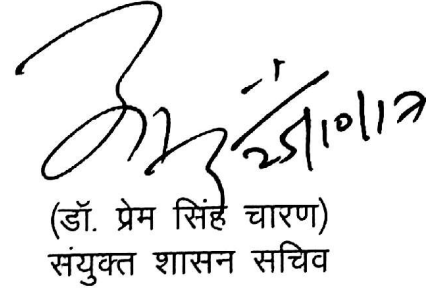 25/10/17
(डॉ. प्रेम सिंह चारण)
संयुक्त शासन सचिव